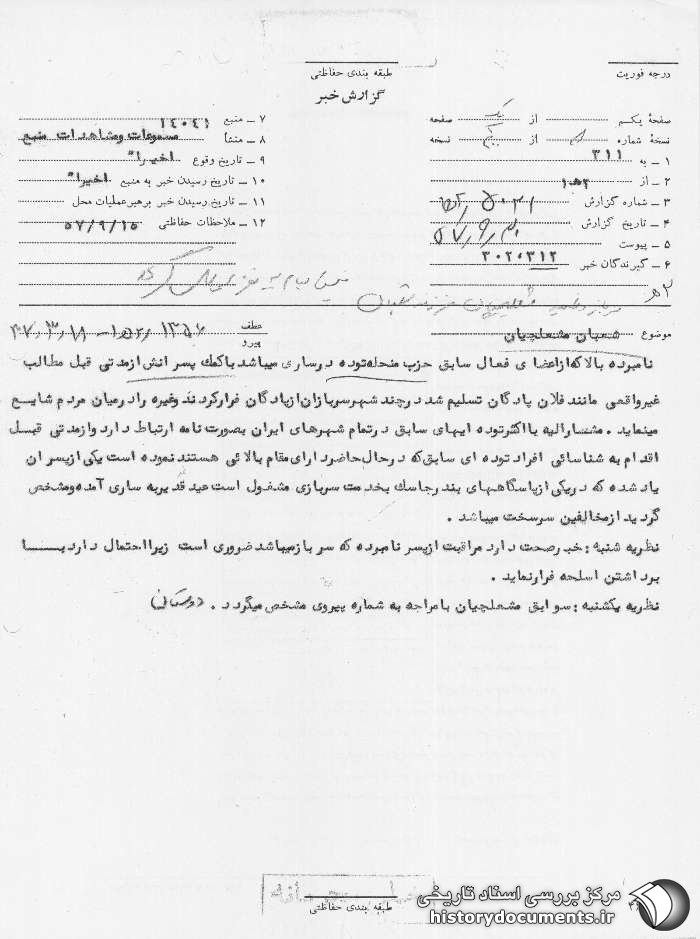 درجه فوریت
طبقه بندی حفاظتی
گزارش خبر
صفحهٔ یکم از یک صفحه
نسخهٔ شماره از نسخه
۱ ــ به ۳۱۱
۲ ــ از ۱ ه‍ ۲
۳ ــ شماره گزارش
۴ ــ تاریخ گزارش
۵ ــ پیوست
۶ ــ گیرندگان خبر ۳۰۲،۳۱۲
۷ ــ منبع ۱۴۰۴۱
۸ ــ منشأ مسموعات ومشاهدات منبع
۹ ــ تاریخ وقوع اخیرا"
۱۰ ــ تاریخ رسیدن خبر به منبع اخیرا"
۱۱ ــ تاریخ رسیدن خبر برهبرعملیات محل
۱۲ ــ ملاحظات حفاظتی ۵۷/۹/۱۵
موضوع شعبان مشعلچیان
عطف
پیرو
نامبرده بالاکه ازاعضای فعال سابق حزب منحله توده درساری میباشد باکمک پسرانش ازمدتی قبل مطالب
غیرواقعی مانند فلان پادگان تسلیم شد درچند شهرسربازان ازپادگان فرارکردند وغیره رادرمیان مردم شایع
مینماید . مشارالیه بااکثرتوده ایهای سابق درتمام شهرهای ایران بصورت نامه ارتباط دارد وازمدتی قبل
اقدام به شناسائی افراد توده ای سابق که درحال حاضردارای مقام بالائی هستند نموده است یکی ازپسران
یادشده که دریکی ازپاسگاههای بندرجاسک بخدمت سربازی مشغول است عید غدیربه ساری آمده ومشخص
گردید ازمخالفین سرسخت میباشد .
نظریه شنبه : خبرصحت دارد مراقبت ازپسر نامبرده که سربازمیباشد ضروری است زیرا احتمال دارد بسا
برداشتن اسلحه فرارنماید .
نظریه یکشنبه : سوابق مشعلچیان بامراجه به شماره پیروی مشخص میگردد .
طبقه بندی حفاظتی
مرکز بررسی اسناد تاریخی
historydocuments.ir